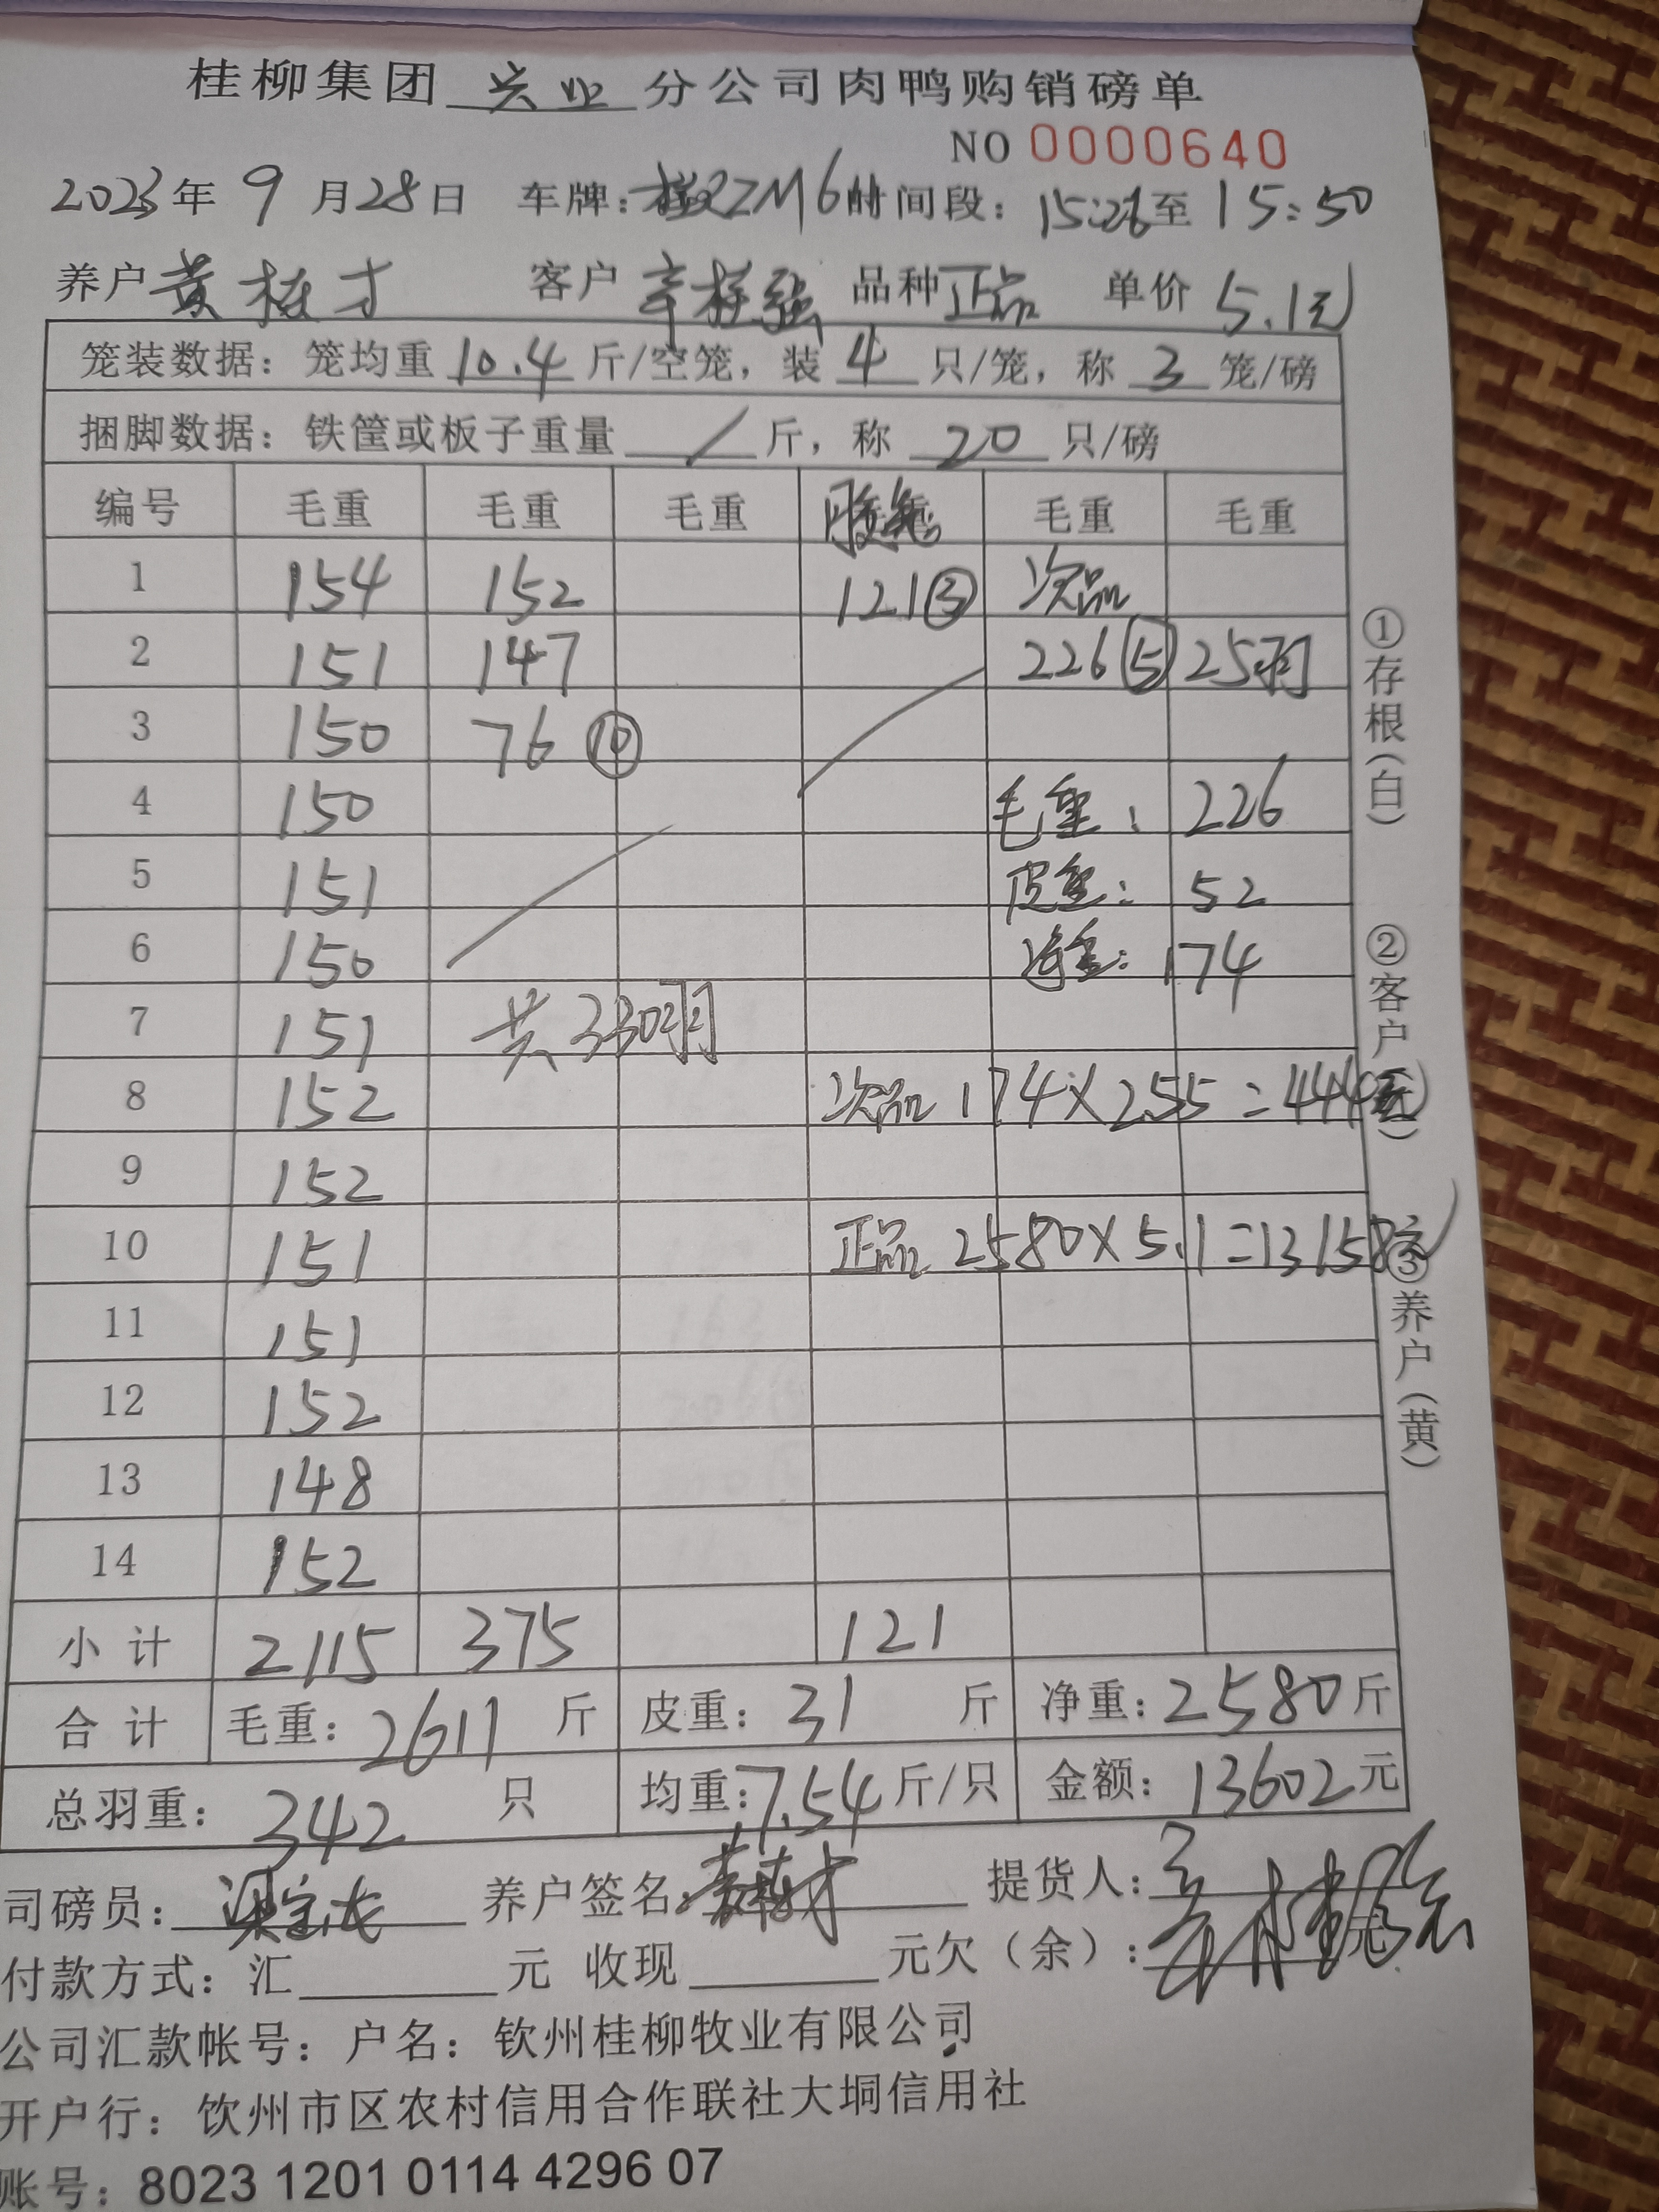 桂柳集团 兴业 分公司肉鸭购销磅单
NO 0000640
2023年 9 月28日 车牌: 时间段: 15:26至 15:50
养户 黄桂才 客户 辛桂强 品种 正品 单价 5.1元
笼装数据: 笼均重 10.4 斤/空笼, 装 4 只/笼, 称 3 笼/磅
捆脚数据: 铁筐或板子重量 / 斤, 称 20 只/磅
编号 毛重 毛重 毛重 毛重 毛重
1 154 152 121③ 次品
2 151 147 226⑤ 25羽
3 150 76⑩
4 150 毛重: 226
5 151 皮重: 52
6 150 净重: 174
7 151 共330羽
8 152 次品 174×2.55=444元
9 152
10 151 正品 2580×5.1=13158元
11 151
12 152
13 148
14 152
小计 2115 375 121
合计 毛重: 2611 斤 皮重: 31 斤 净重: 2580斤
总羽重: 342 只 均重: 7.54斤/只 金额: 13602元
司磅员: 养户签名: 提货人:
付款方式: 汇 元 收现 元欠(余): 元
公司汇款帐号: 户名: 钦州桂柳牧业有限公司
开户行: 饮州市区农村信用合作联社大垌信用社
账号: 8023 1201 0114 4296 07
①存根(白)
②客户( )
③养户(黄)